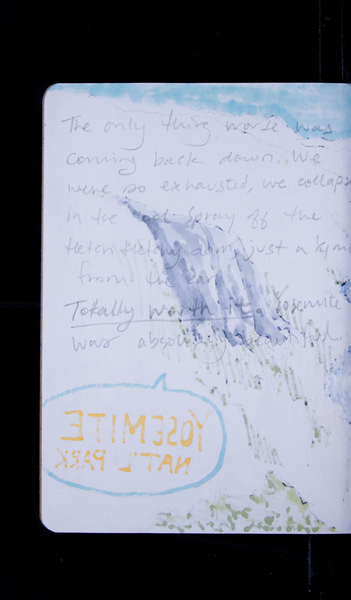 The only thing worse was
coming back down. We
were so exhausted, we collapse
in the cool spray off the
Hetch Hetchy dam, just a 1/4 mi
from the car.
Totally worth it. Yosemite
was absolutely beautiful.
YOSEMITE
NAT'L PARK